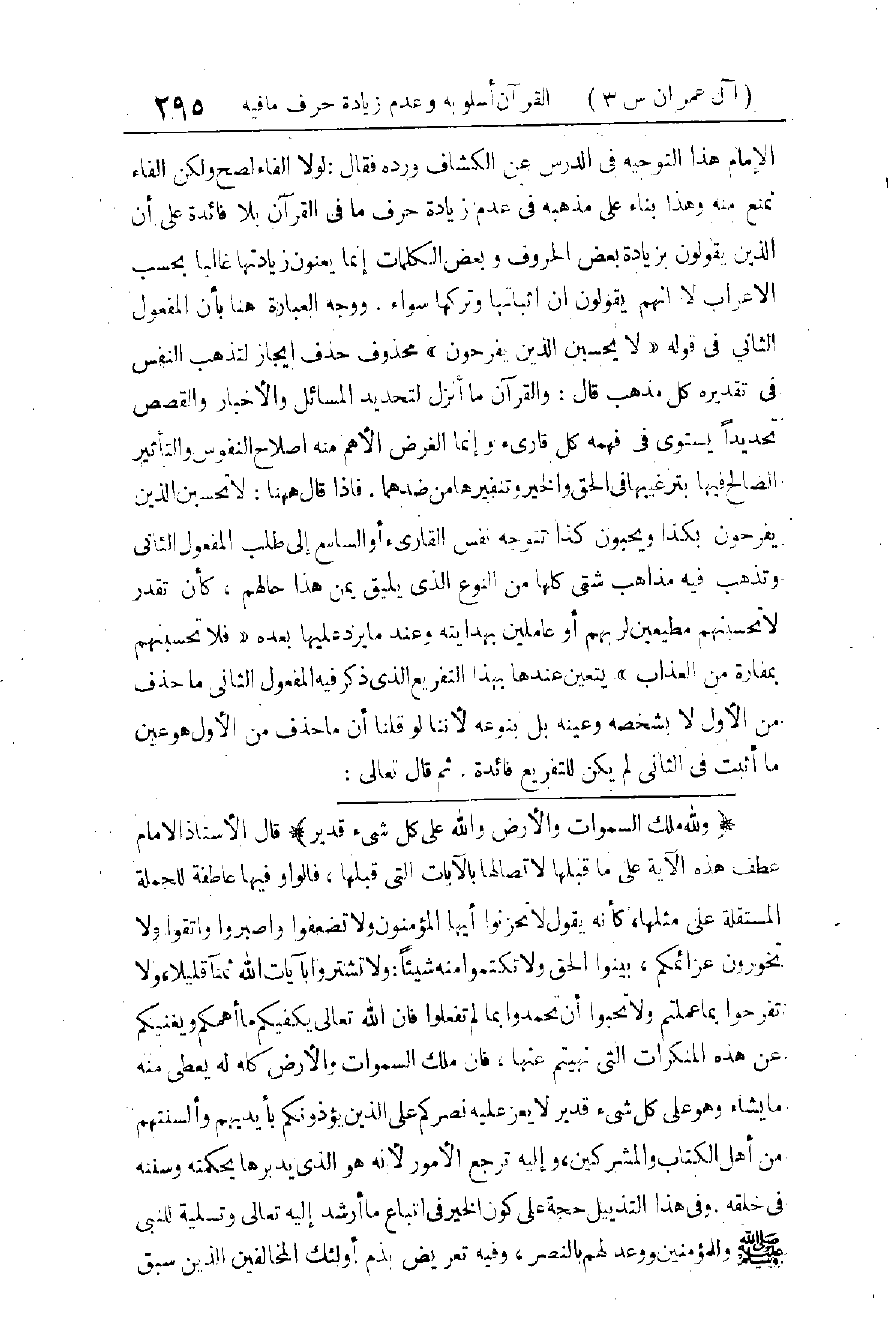 (آل عمران س ٣) القرآن أسلوبه وعدم زيادة حرف مافيه ٢٩٥
الإمام هذا التوجيه فى الدرس عن الكشاف ورده فقال : لولا الفاء لصح ولكن الفاء
تمنع منه وهذا بناء على مذهبه فى عدم زيادة حرف ما فى القرآن بلا فائدة على أن
الذين يقولون بزيادة بعض الحروف وبعض الكلمات إنما يعنون زيادتها غالبا بحسب
الاعراب لا انهم يقولون ان اثباتها وتركها سواء . ووجه العبارة هنا بأن المفعول
الثاني فى قوله « لا يحسبن الذين يفرحون » محذوف حذف إيجاز لتذهب النفس
فى تقديره كل مذهب قال : والقرآن ما أنزل لتحديد المسائل والأخبار والقصص
تحديداً يستوى فى فهمه كل قارىء وإنما الغرض الأهم منه اصلاح النفوس والتأثير
الصالح فيها بترغيبها فى الحق والخير وتنفيرها من ضدهما . فاذا قال ههنا : لا تحسبن الذين
يفرحون بكذا ويحبون كذا تتوجه نفس القارىء أو السامع إلى طلب المفعول الثانى
وتذهب فيه مذاهب شتى كلها من النوع الذى يليق بمن هذا حالهم ، كأن تقدر
لا تحسبنهم مطيعين لربهم أو عاملين بهدايته وعند ما يرد عليها بعده « فلا تحسبنهم
بمفازة من العذاب » يتعين عندها بهذا التفريع الذى ذكر فيه المفعول الثانى ما حذف
من الأول لا بشخصه وعينه بل بنوعه لأننا لو قلنا أن ماحذف من الأول هو عين
ما أثبت فى الثانى لم يكن للتفريع فائدة . ثم قال تعالى :
﴿ ولله ملك السموات والأرض والله على كل شىء قدير ﴾ قال الأستاذ الامام
عطف هذه الآية على ما قبلها لاتصالها بالآيات التى قبلها ، فالواو فيها عاطفة للجملة
المستقلة على مثلها، كأنه يقول لاتحزنوا أيها المؤمنون ولا تضعفوا واصبروا واتقوا ولا
تخورون عزائمكم ، بينوا الحق ولا تكتموا منه شيئاً: ولا تشتروا بآيات الله ثمنا قليلا، ولا
تفرحوا بماعملتم ولا تحبوا أن تحمدوا بما لم تفعلوا فان الله تعالى يكفيكم ما أهمكم ويغنيكم
عن هذه المنكرات التى نهيتم عنها ، فان ملك السموات والأرض كله له يعطى منه
مايشاء وهو على كل شىء قدير لا يعز عليه نصركم على الذين يؤذونكم بأيديهم وألسنتهم
من أهل الكتاب والمشركين، وإليه ترجع الأمور لأنه هو الذى يدبرها بحكمته وسننه
فى خلقه . وفى هذا التذييل حجة على كون الخير فى اتباع ما أرشد إليه تعالى وتسلية للنبى
ﷺ والمؤمنين ووعد لهم بالنصر ، وفيه تعريض بذم أولئك المخالفين الذين سبق